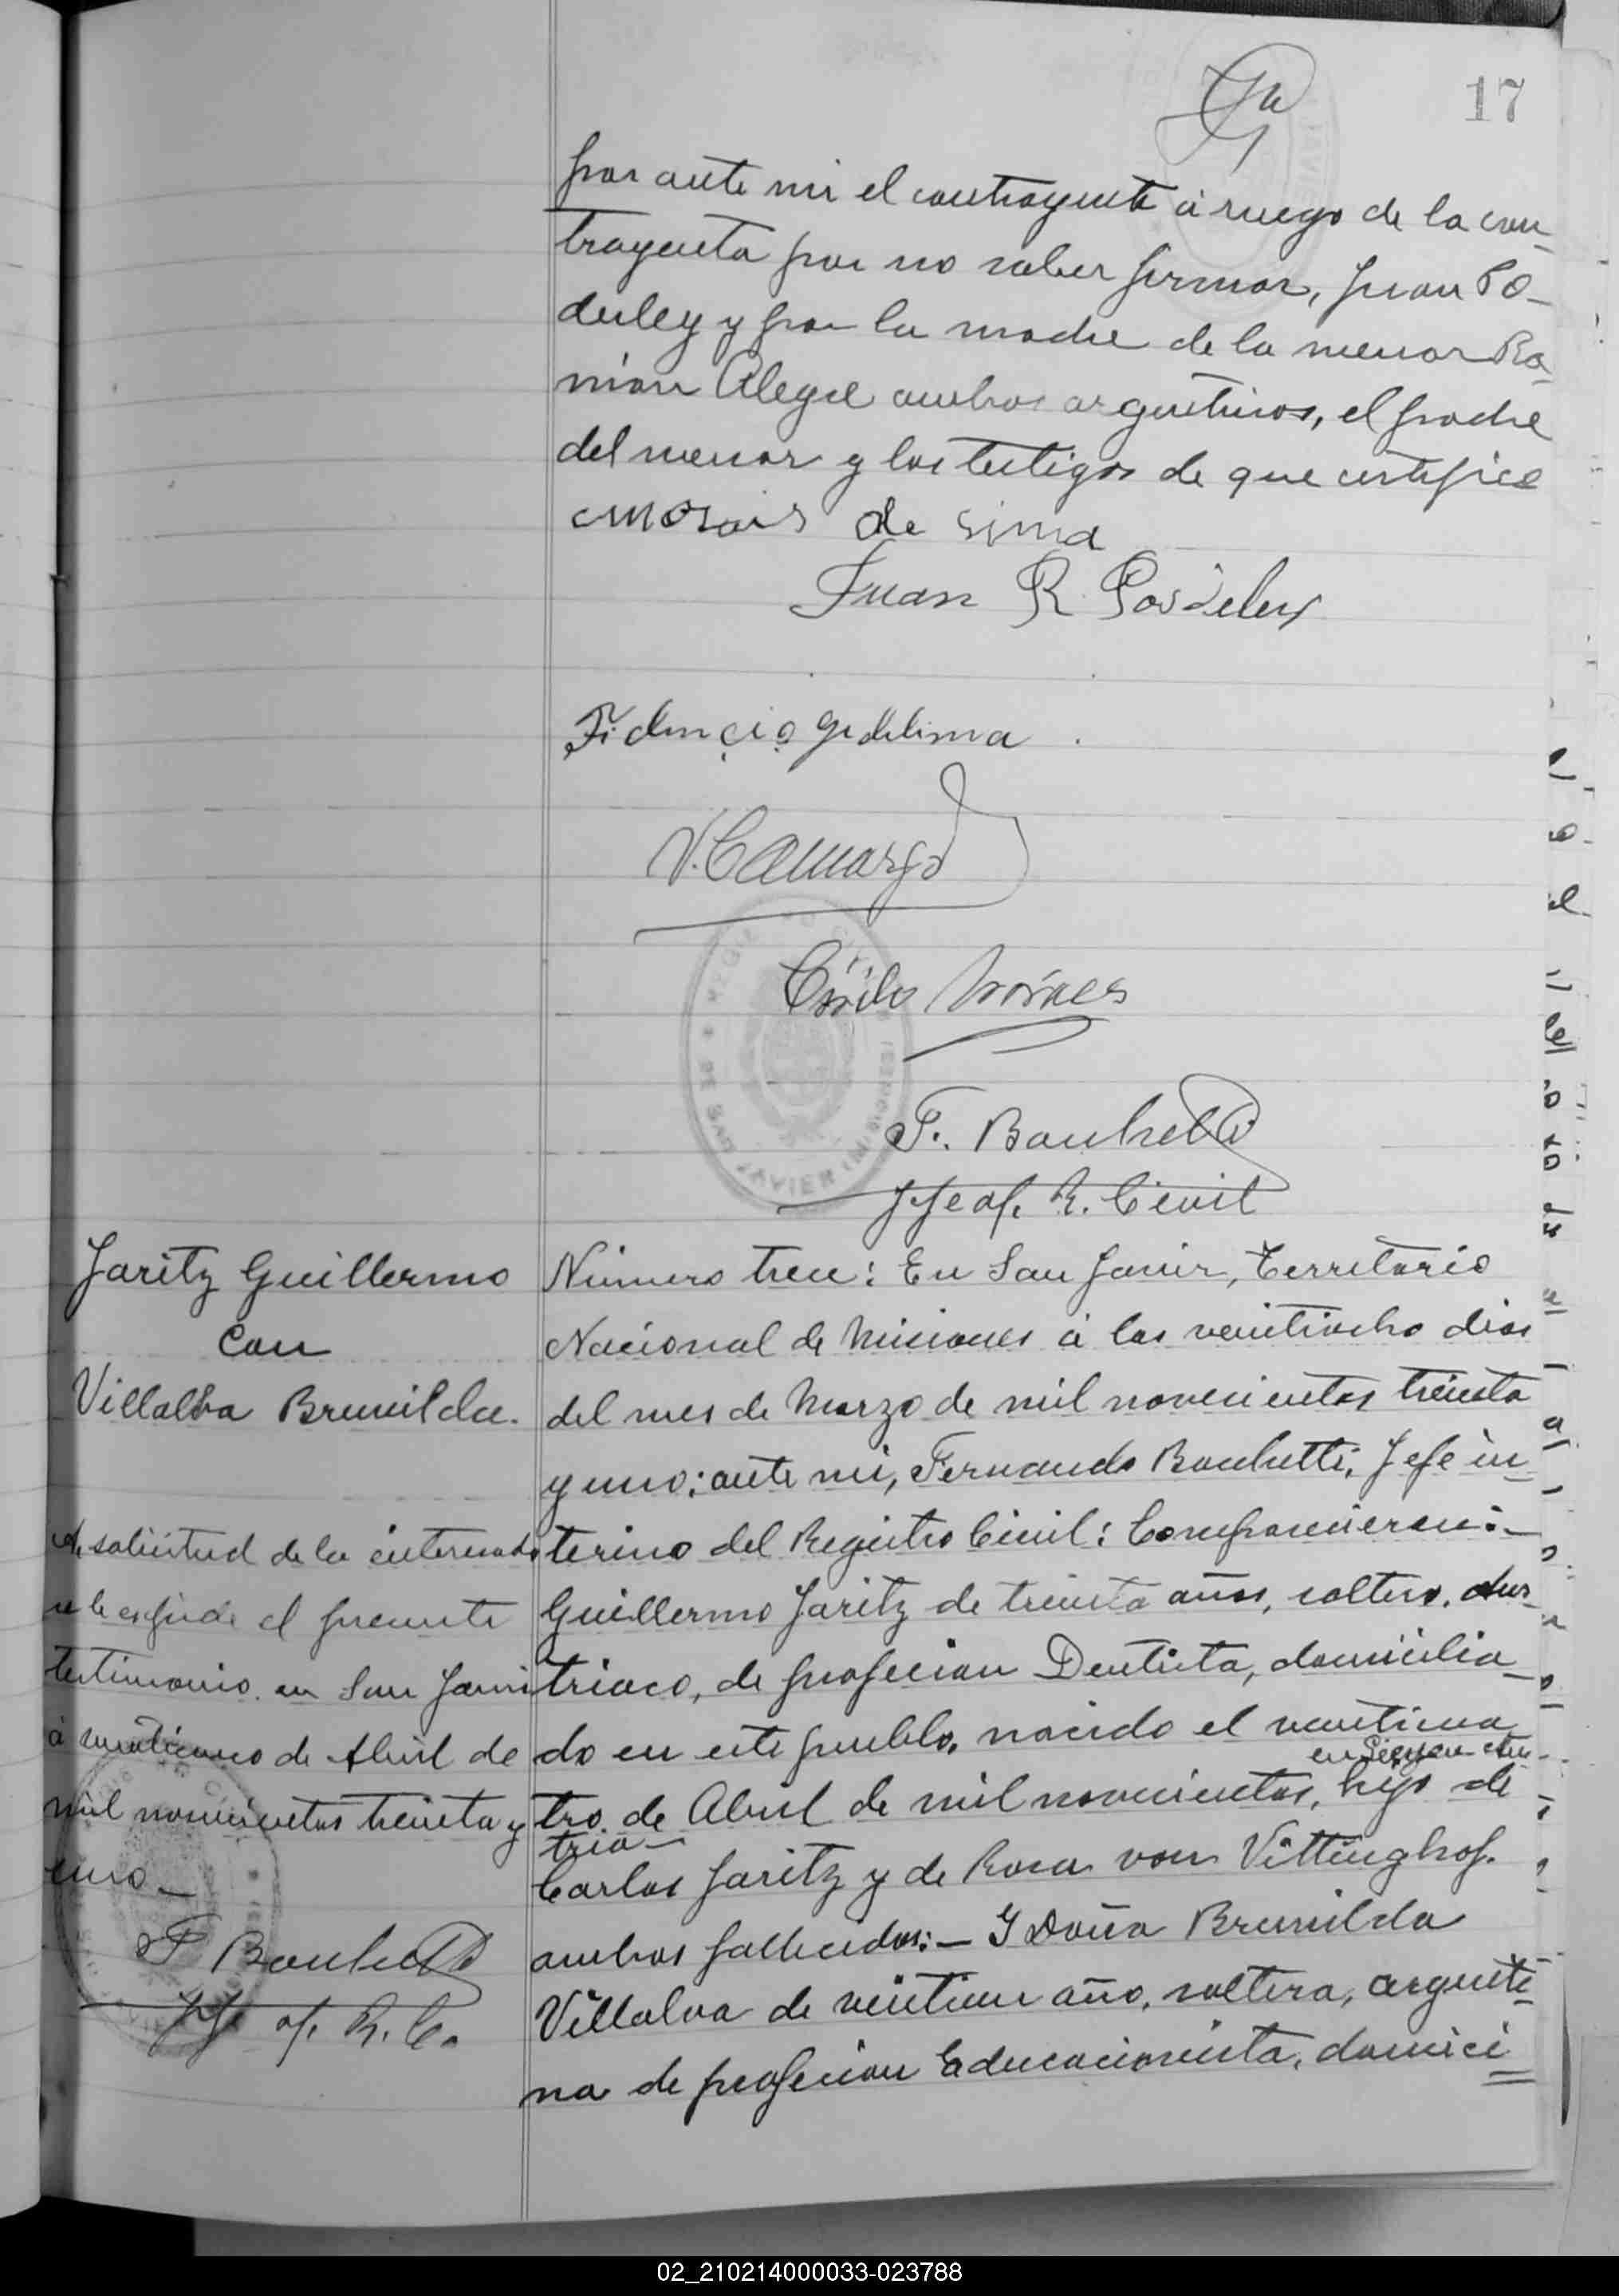 17
por ante mi el contrayente á ruego de la con-
trayenta por no saber firmar, Juan Po-
deley y por la madre de la menor Ra-
món Alegre ambos argentinos, el padre
del menor y los testigos de que certifico
morais de Lima
Juan R. Posdeley
Fidencio G delima
V. Camargo
Cirilo Moraes
F. Bonhetti
Jefe of. R. Civil
Jaritz Guillermo
con
Villalba Brunilda.
A solicitud de la interesada
se le espide el presente
testimonio en San Javier
á veinticinco de Abril de
mil novecientos treinta y
uno
Jefe of. R. C.
Número trece: En San Javier, Territorio
Nacional de Misiones á los veintiocho dias
del mes de Marzo de mil novecientos treinta
y uno: ante mi, Fernando Bonhetti, Jefe in-
terino del Registro Civil: Comparecieron:-
Guillermo Jaritz de treinta años, soltero, Aus-
triaco, de profesion Dentista, domicilia-
do en este pueblo, nacido el veinticua
en Austria
tro de Abril de mil novecientos, hijo de
Carlos Jaritz y de Rosa von Vittinghof.
ambos fallecidos:— Y Doña Brunilda
Villalva de veintiun año, soltera, argenti-
na de profesion Educacionista, domici
02_210214000033-023788